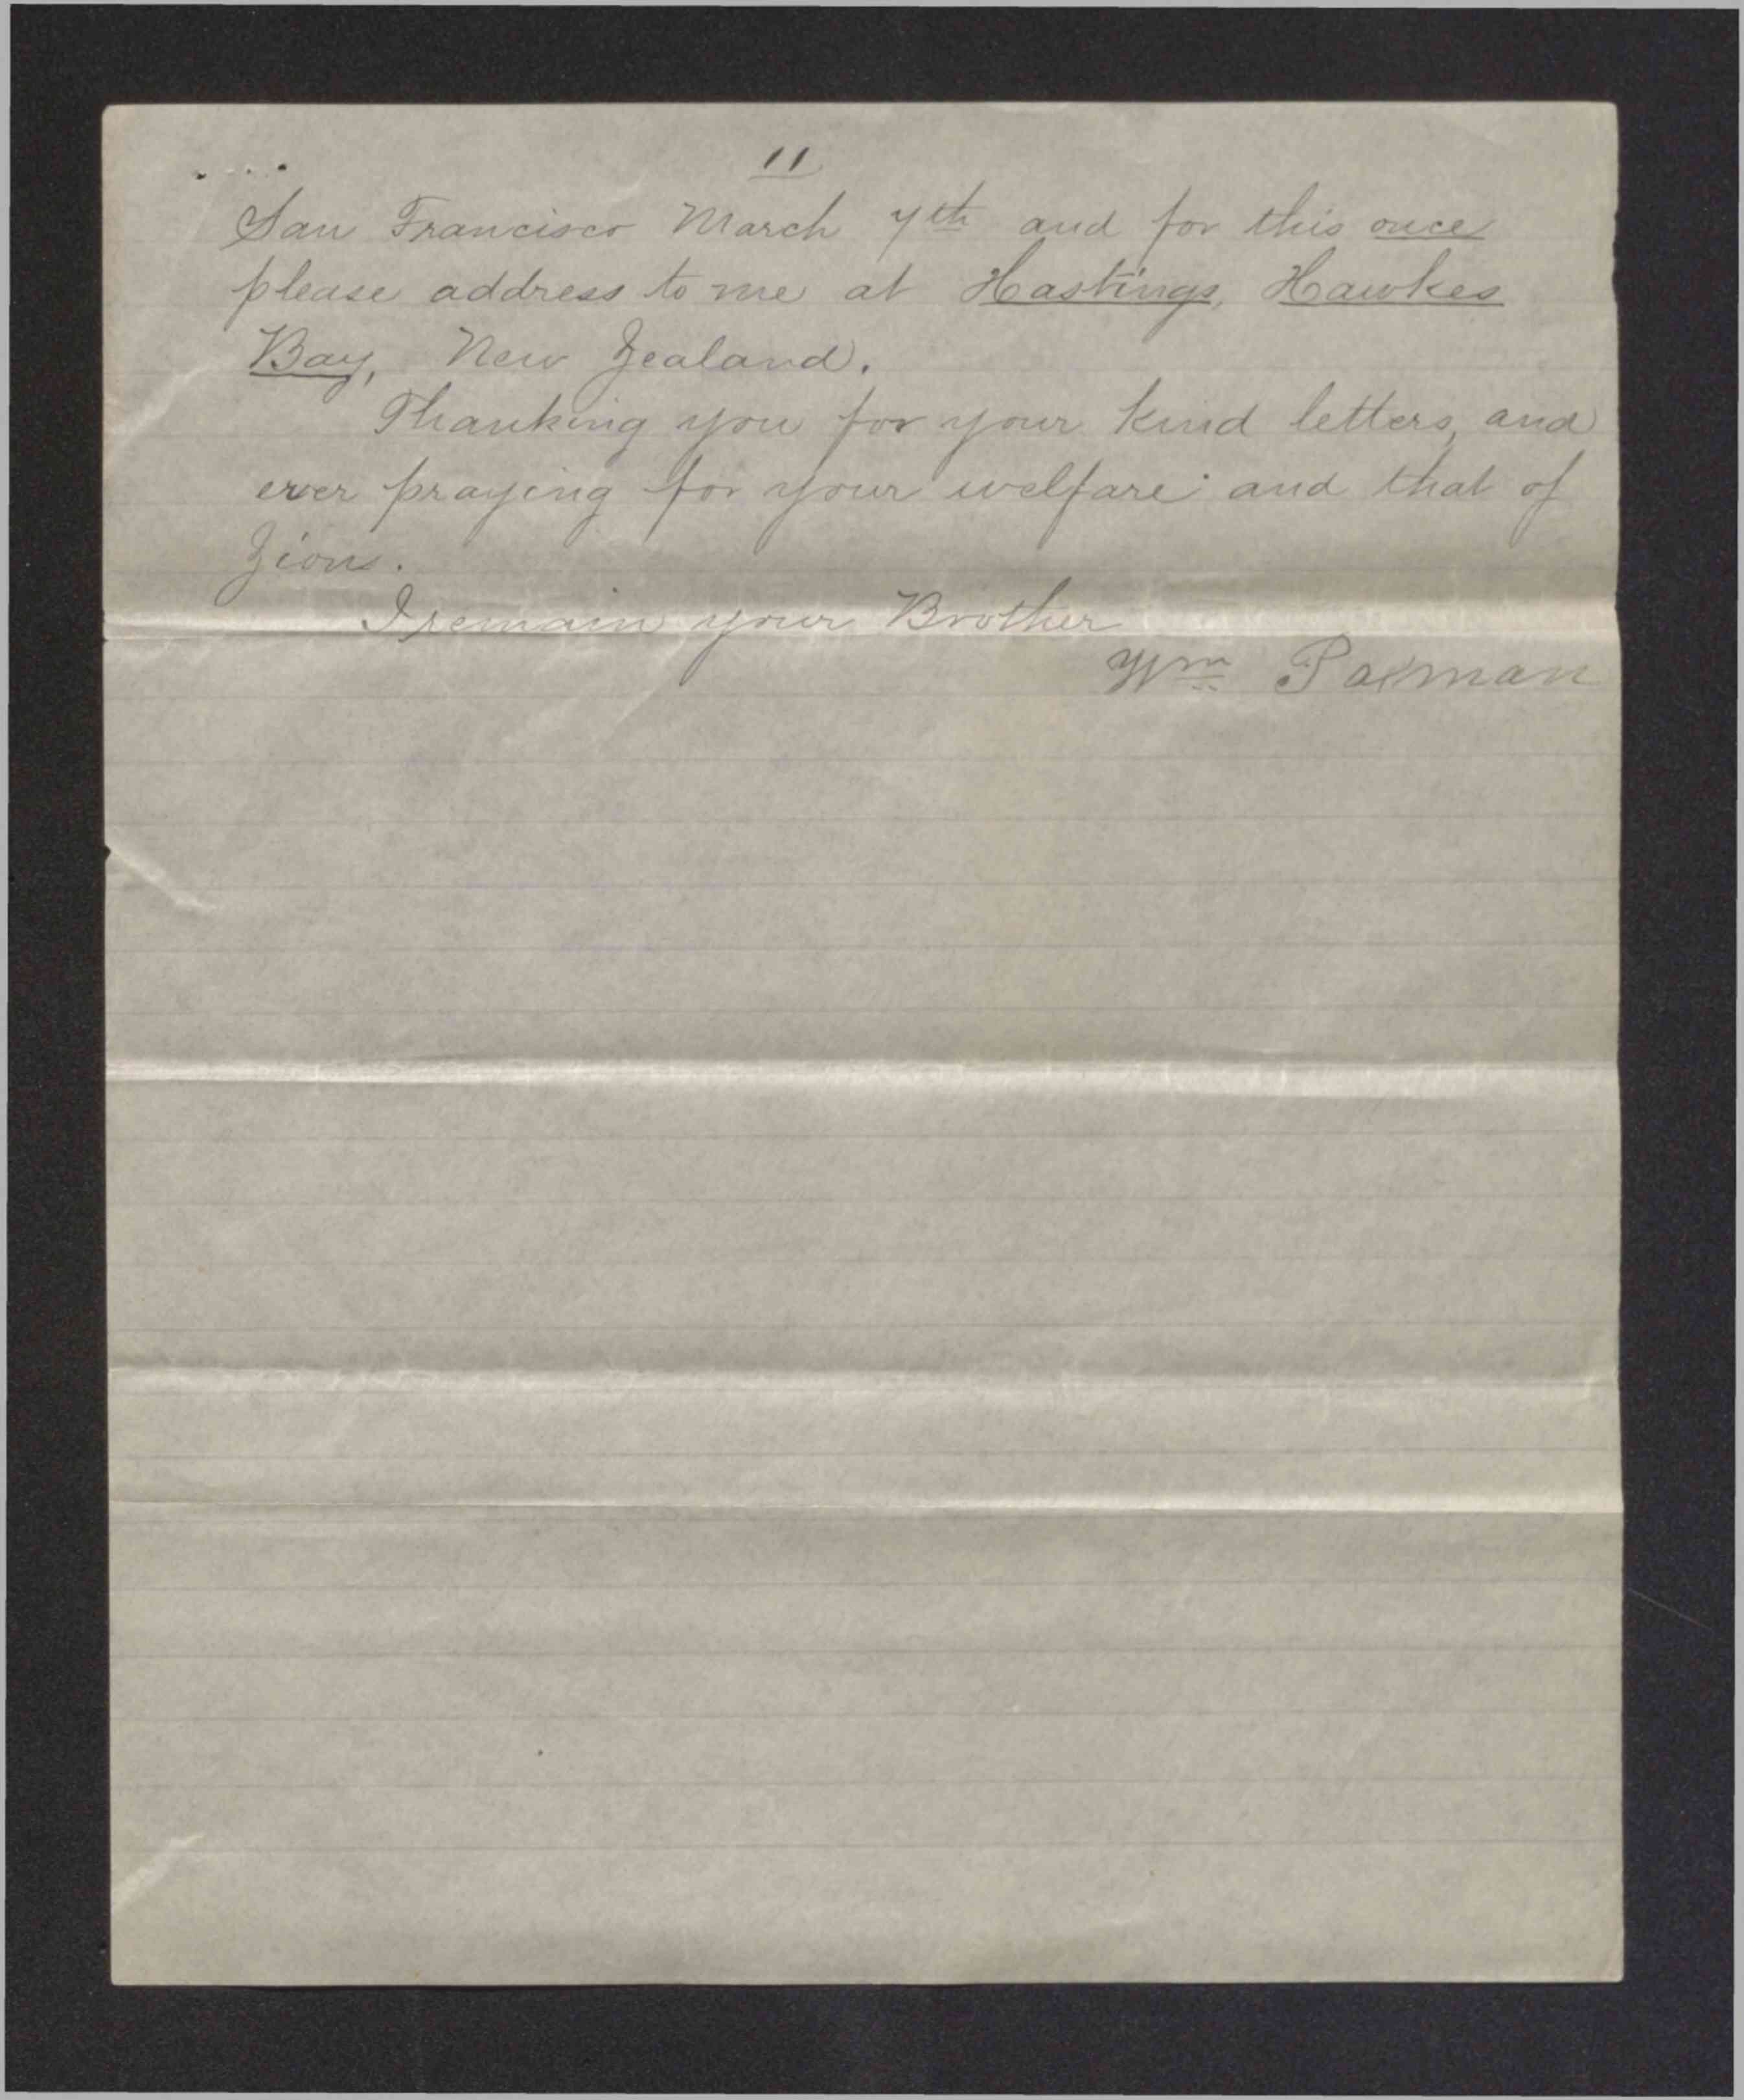 11
San Francisco March 7th and for this once
please address to me at Hastings, Hawkes
Bay, New Zealand.
Thanking you for your kind letters, and
ever praying for your welfare and that of
Zion.
I remain your Brother
Wm Paxman